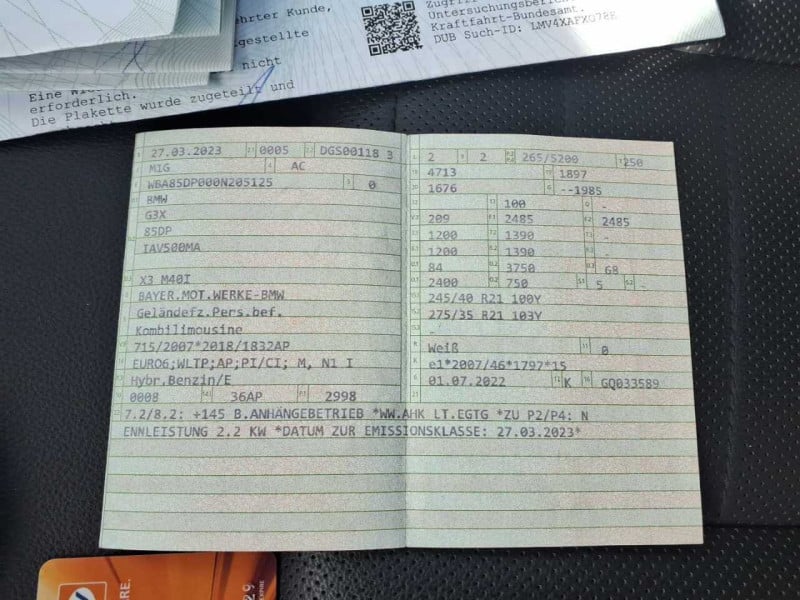 ehrter Kunde,
gestellte
nicht
Eine Wie
erforderlich.
Die Plakette wurde zugeteilt und
Zugriff
Untersuchungsberich
Kraftfahrt-Bundesamt.
DUB Such-ID:
27.03.2023 0005 DGS00118 3
MIG AC
WBA85DP000N205125 0
BMW
G3X
85DP
IAV500MA
X3 M40I
BAYER.MOT.WERKE-BMW
Geländefz.Pers.bef.
Kombilimousine
715/2007*2018/1832AP
EURO6;WLTP;AP;PI/CI; M, N1 I
Hybr.Benzin/E
0008 36AP 2998
2 2 265/5200 250
4713 1897
1676 --1985
100 -
209 2485 2485
1200 1390 -
1200 1390 -
84 3750 68
2400 750 5 -
245/40 R21 100Y
275/35 R21 103Y
-
Weiß 0
e1*2007/46*1797*15
01.07.2022 K GQ033589
7.2/8.2: +145 B.ANHÄNGEBETRIEB *WW.AHK LT.EGTG *ZU P2/P4: N
ENNLEISTUNG 2.2 KW *DATUM ZUR EMISSIONSKLASSE: 27.03.2023*